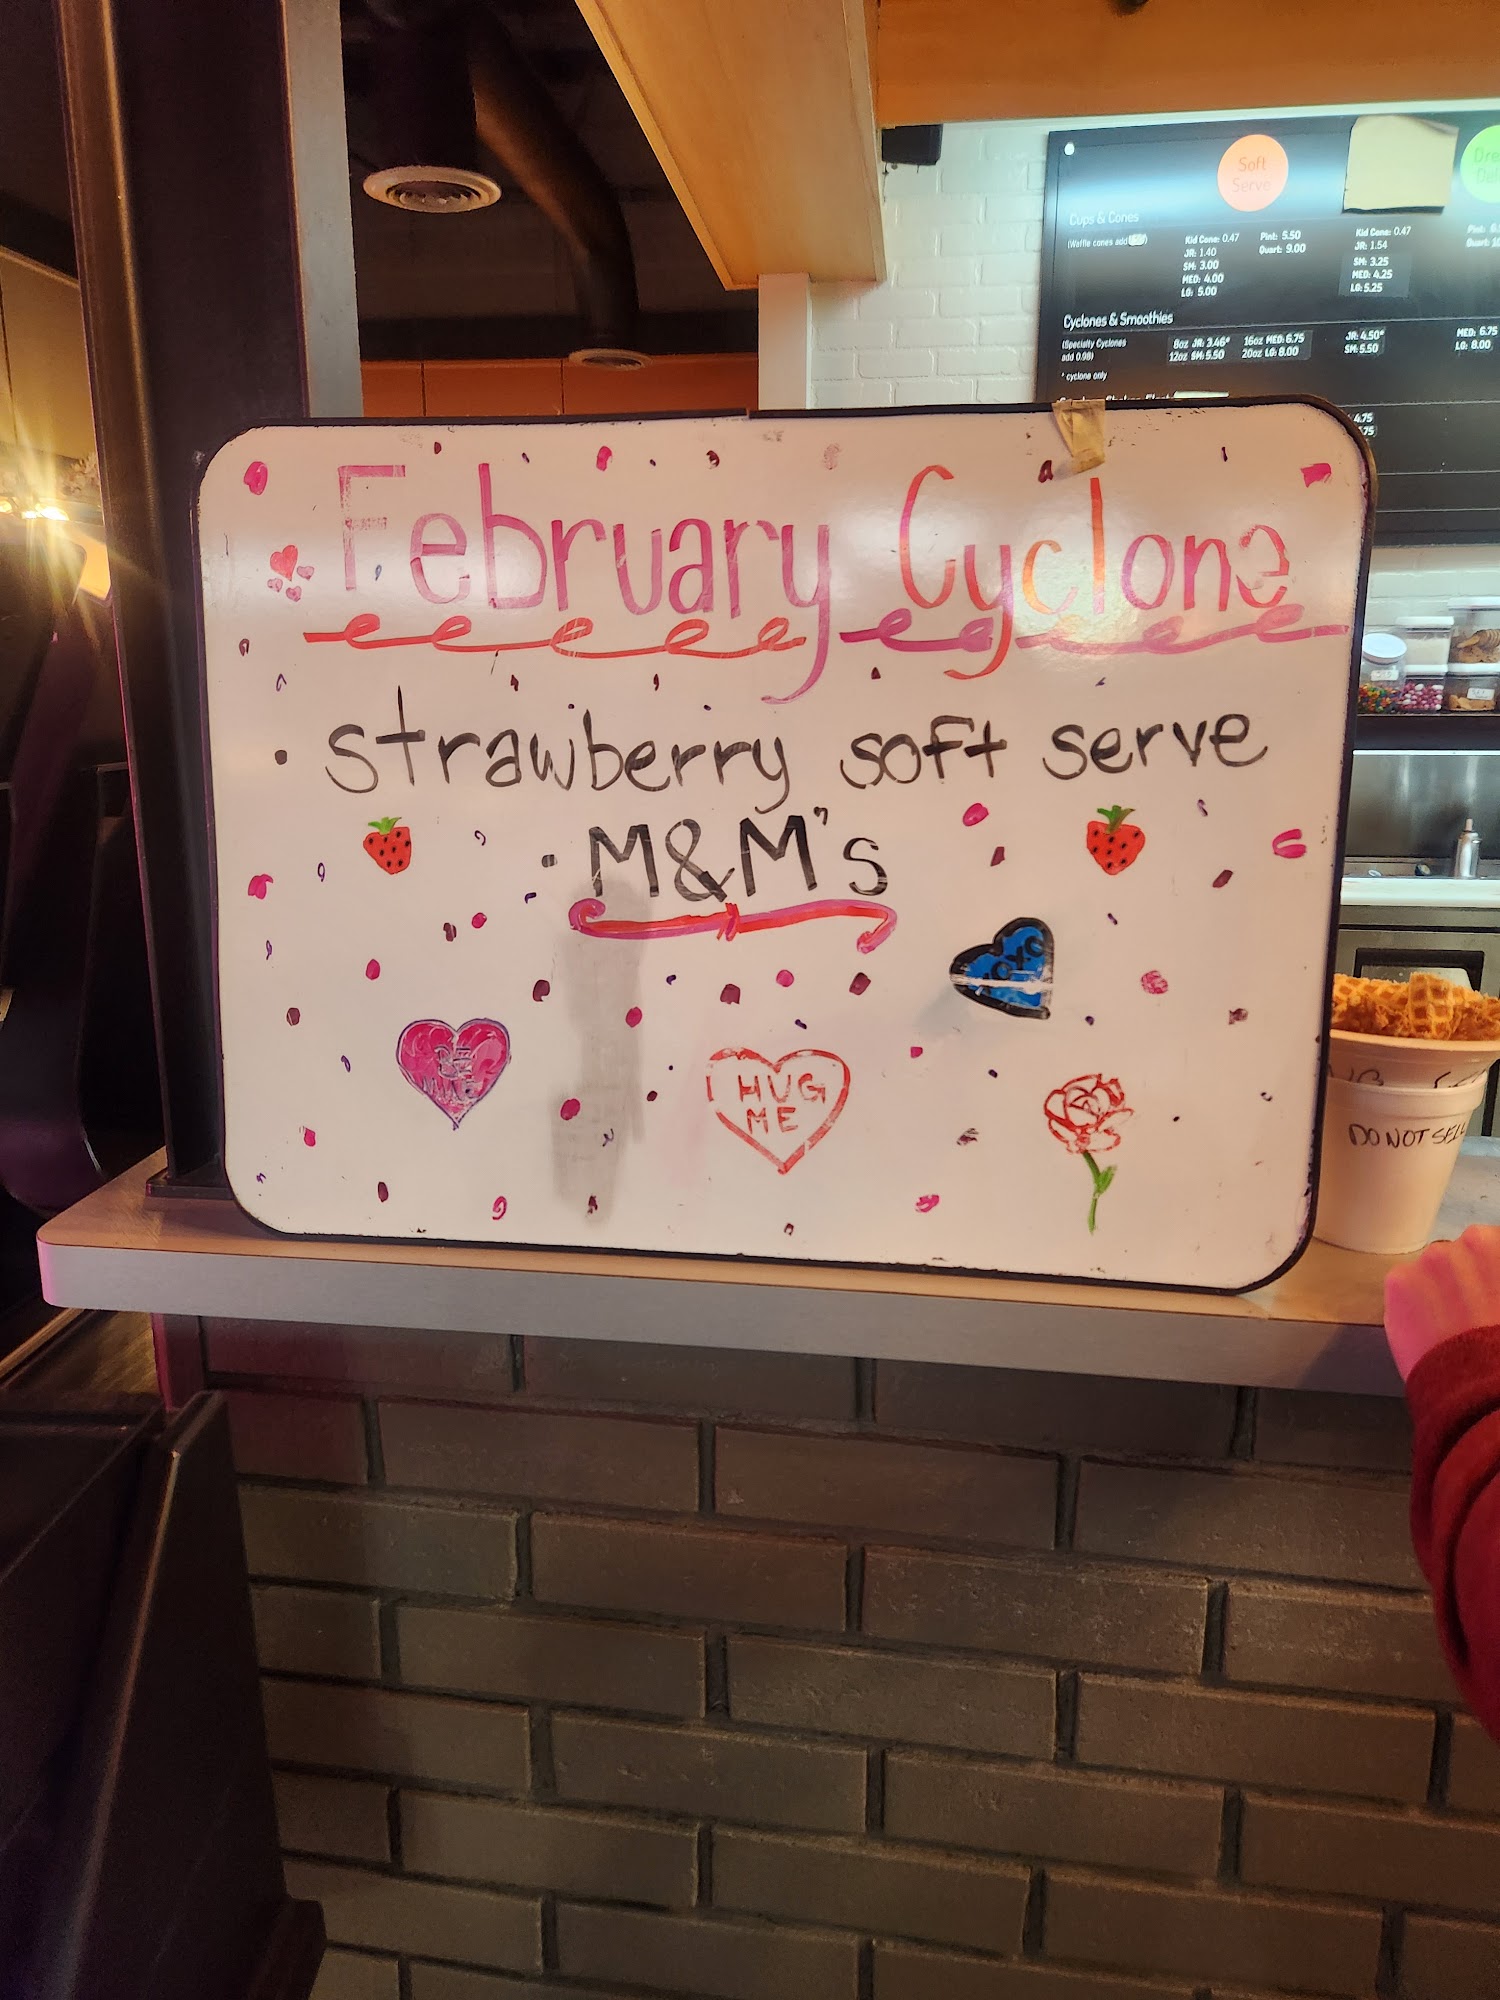 Soft
Serve
Cups & Cones
(Waffle cones add
Kid Cone: 0.47
JR: 1.40
SM: 3.00
MED: 4.00
LG: 5.00
Pint: 5.50
Quart: 9.00
Kid Cone: 0.47
JR: 1.54
SM: 3.25
MED: 4.25
LG: 5.25
Cyclones & Smoothies
(Specialty Cyclones
add 0.98)
* cyclone only
8oz JR: 3.46* 16oz MED: 6.75
12oz SM: 5.50 20oz LG: 8.00
JR: 4.50*
SM: 5.50
MED: 6.75
LG: 8.00
4.75
February Cyclone
strawberry soft serve
M&M's
XOXO
BE
MINE
HUG
ME
DO NOT SELL